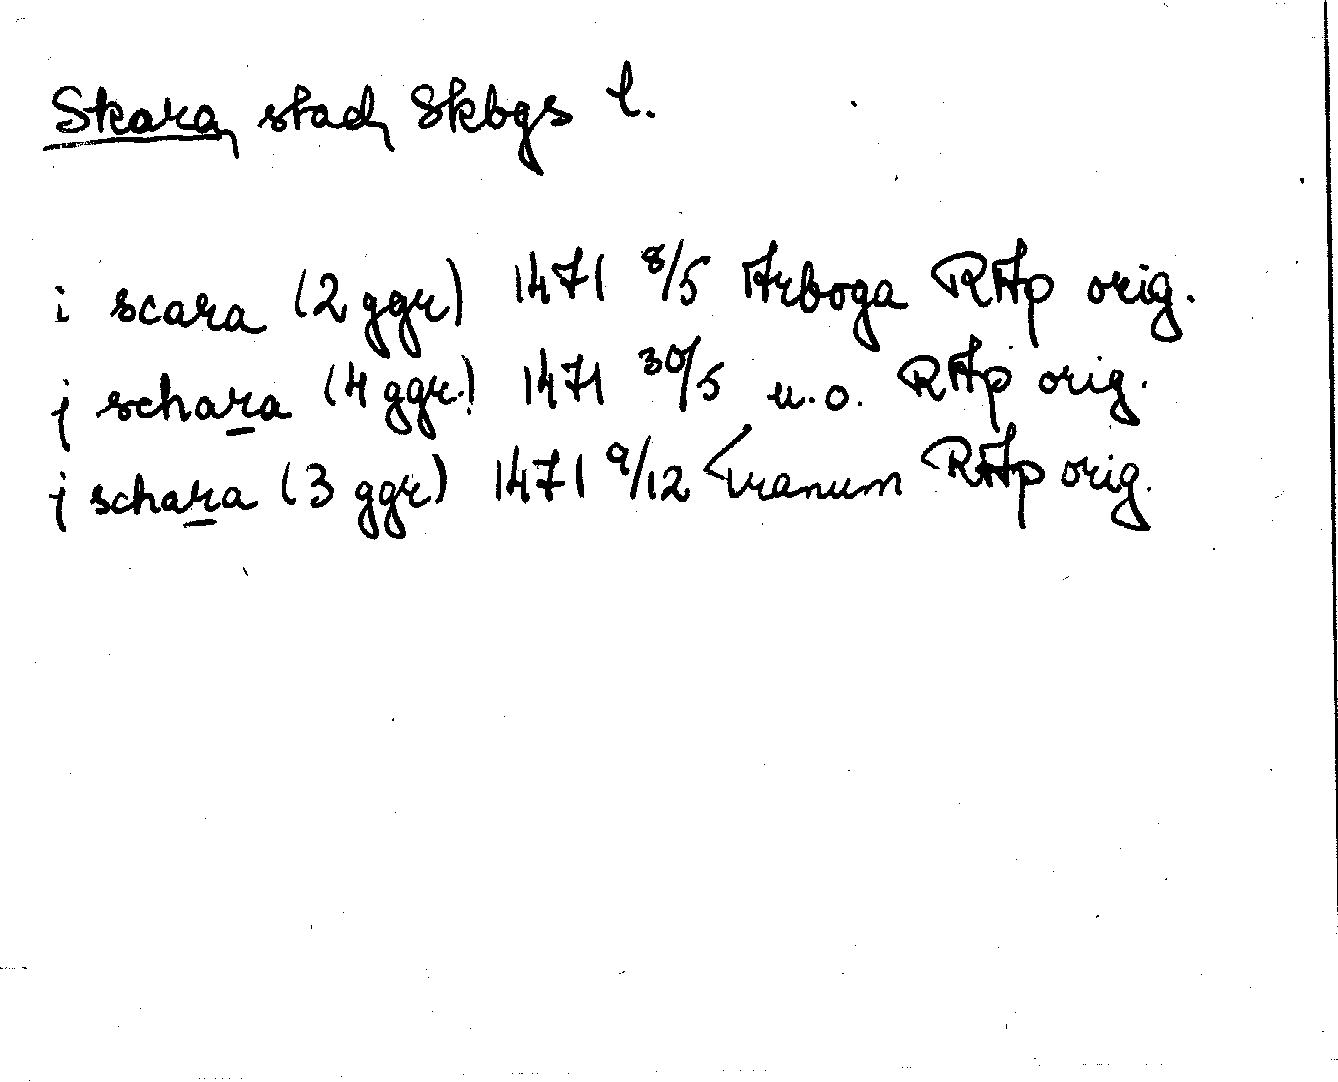 Skara, stad, Skbgs l.
i scara (2 ggr) 1471 8/5 Arboga RAp orig.
j schara (4 ggr.) 1471 30/5 u.o. RAp orig.
j schara (3 ggr) 1471 9/12 RAp orig.